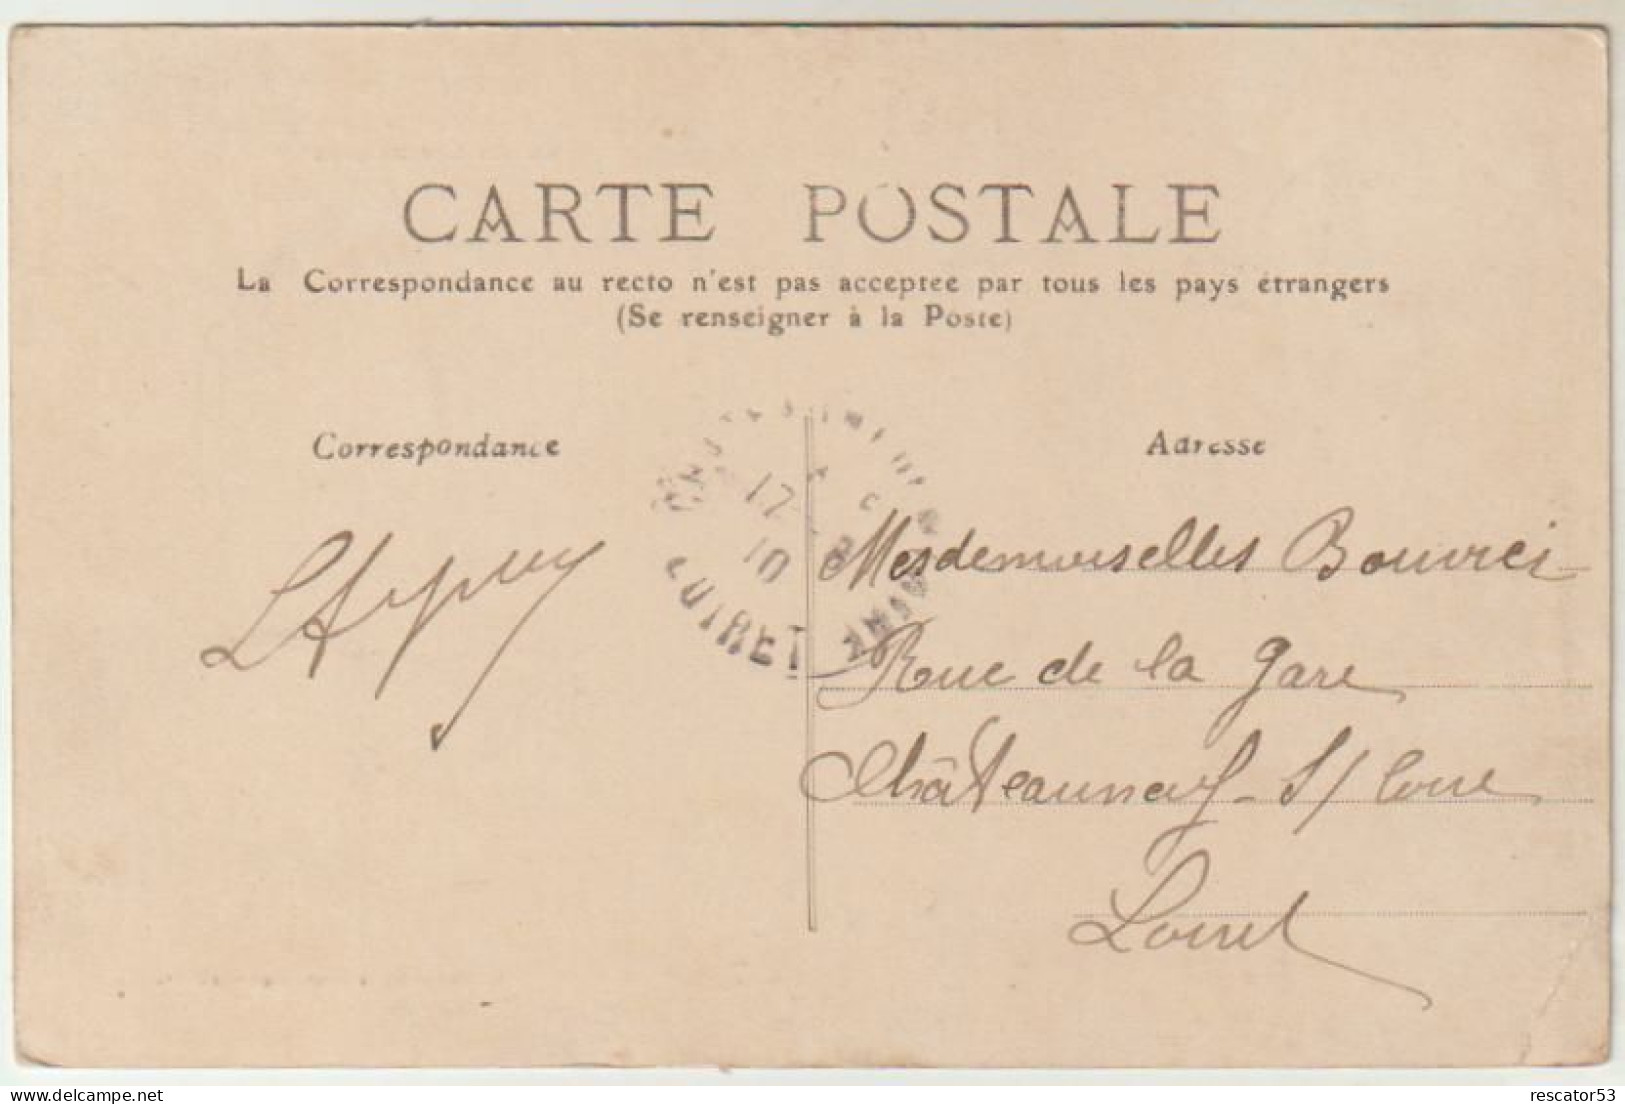 CARTE POSTALE
La Correspondance au recto n'est pas acceptee par tous les pays étrangers
(Se renseigner à la Poste)
Correspondance
Adresse
17
10
LOIRET
Mesdemoiselles
Rue de la gare
Châteauneuf - S/ Loire
Loiret
delcampe.net
rescator53